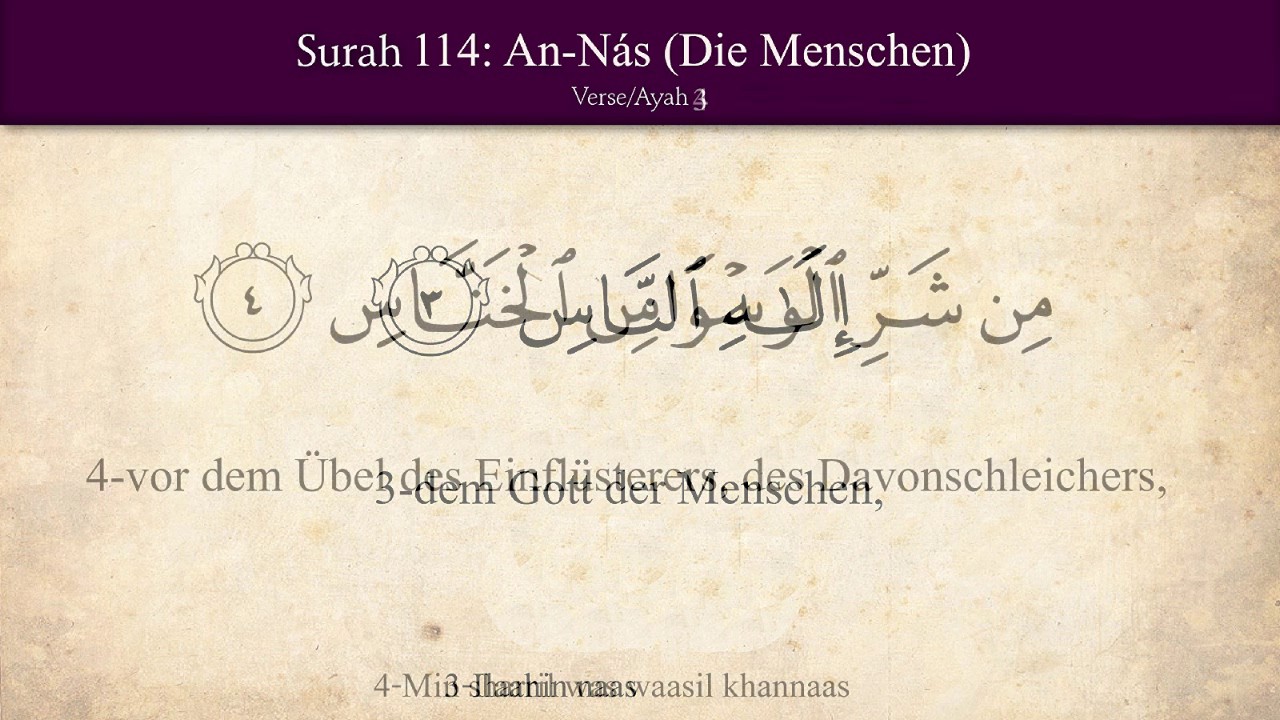 Surah 114: An-Nás (Die Menschen)
Verse/Ayah
مِن شَرِّ ٱلْوَسْوَاسِ ٱلْخَنَّاسِ ٤
إِلَٰهِ ٱلنَّاسِ ٣
4-vor dem Übel des Einflüsterers, des Davonschleichers,
3-dem Gott der Menschen,
4-Min sharril waswaasil khannaas
3-Ilaahin naas